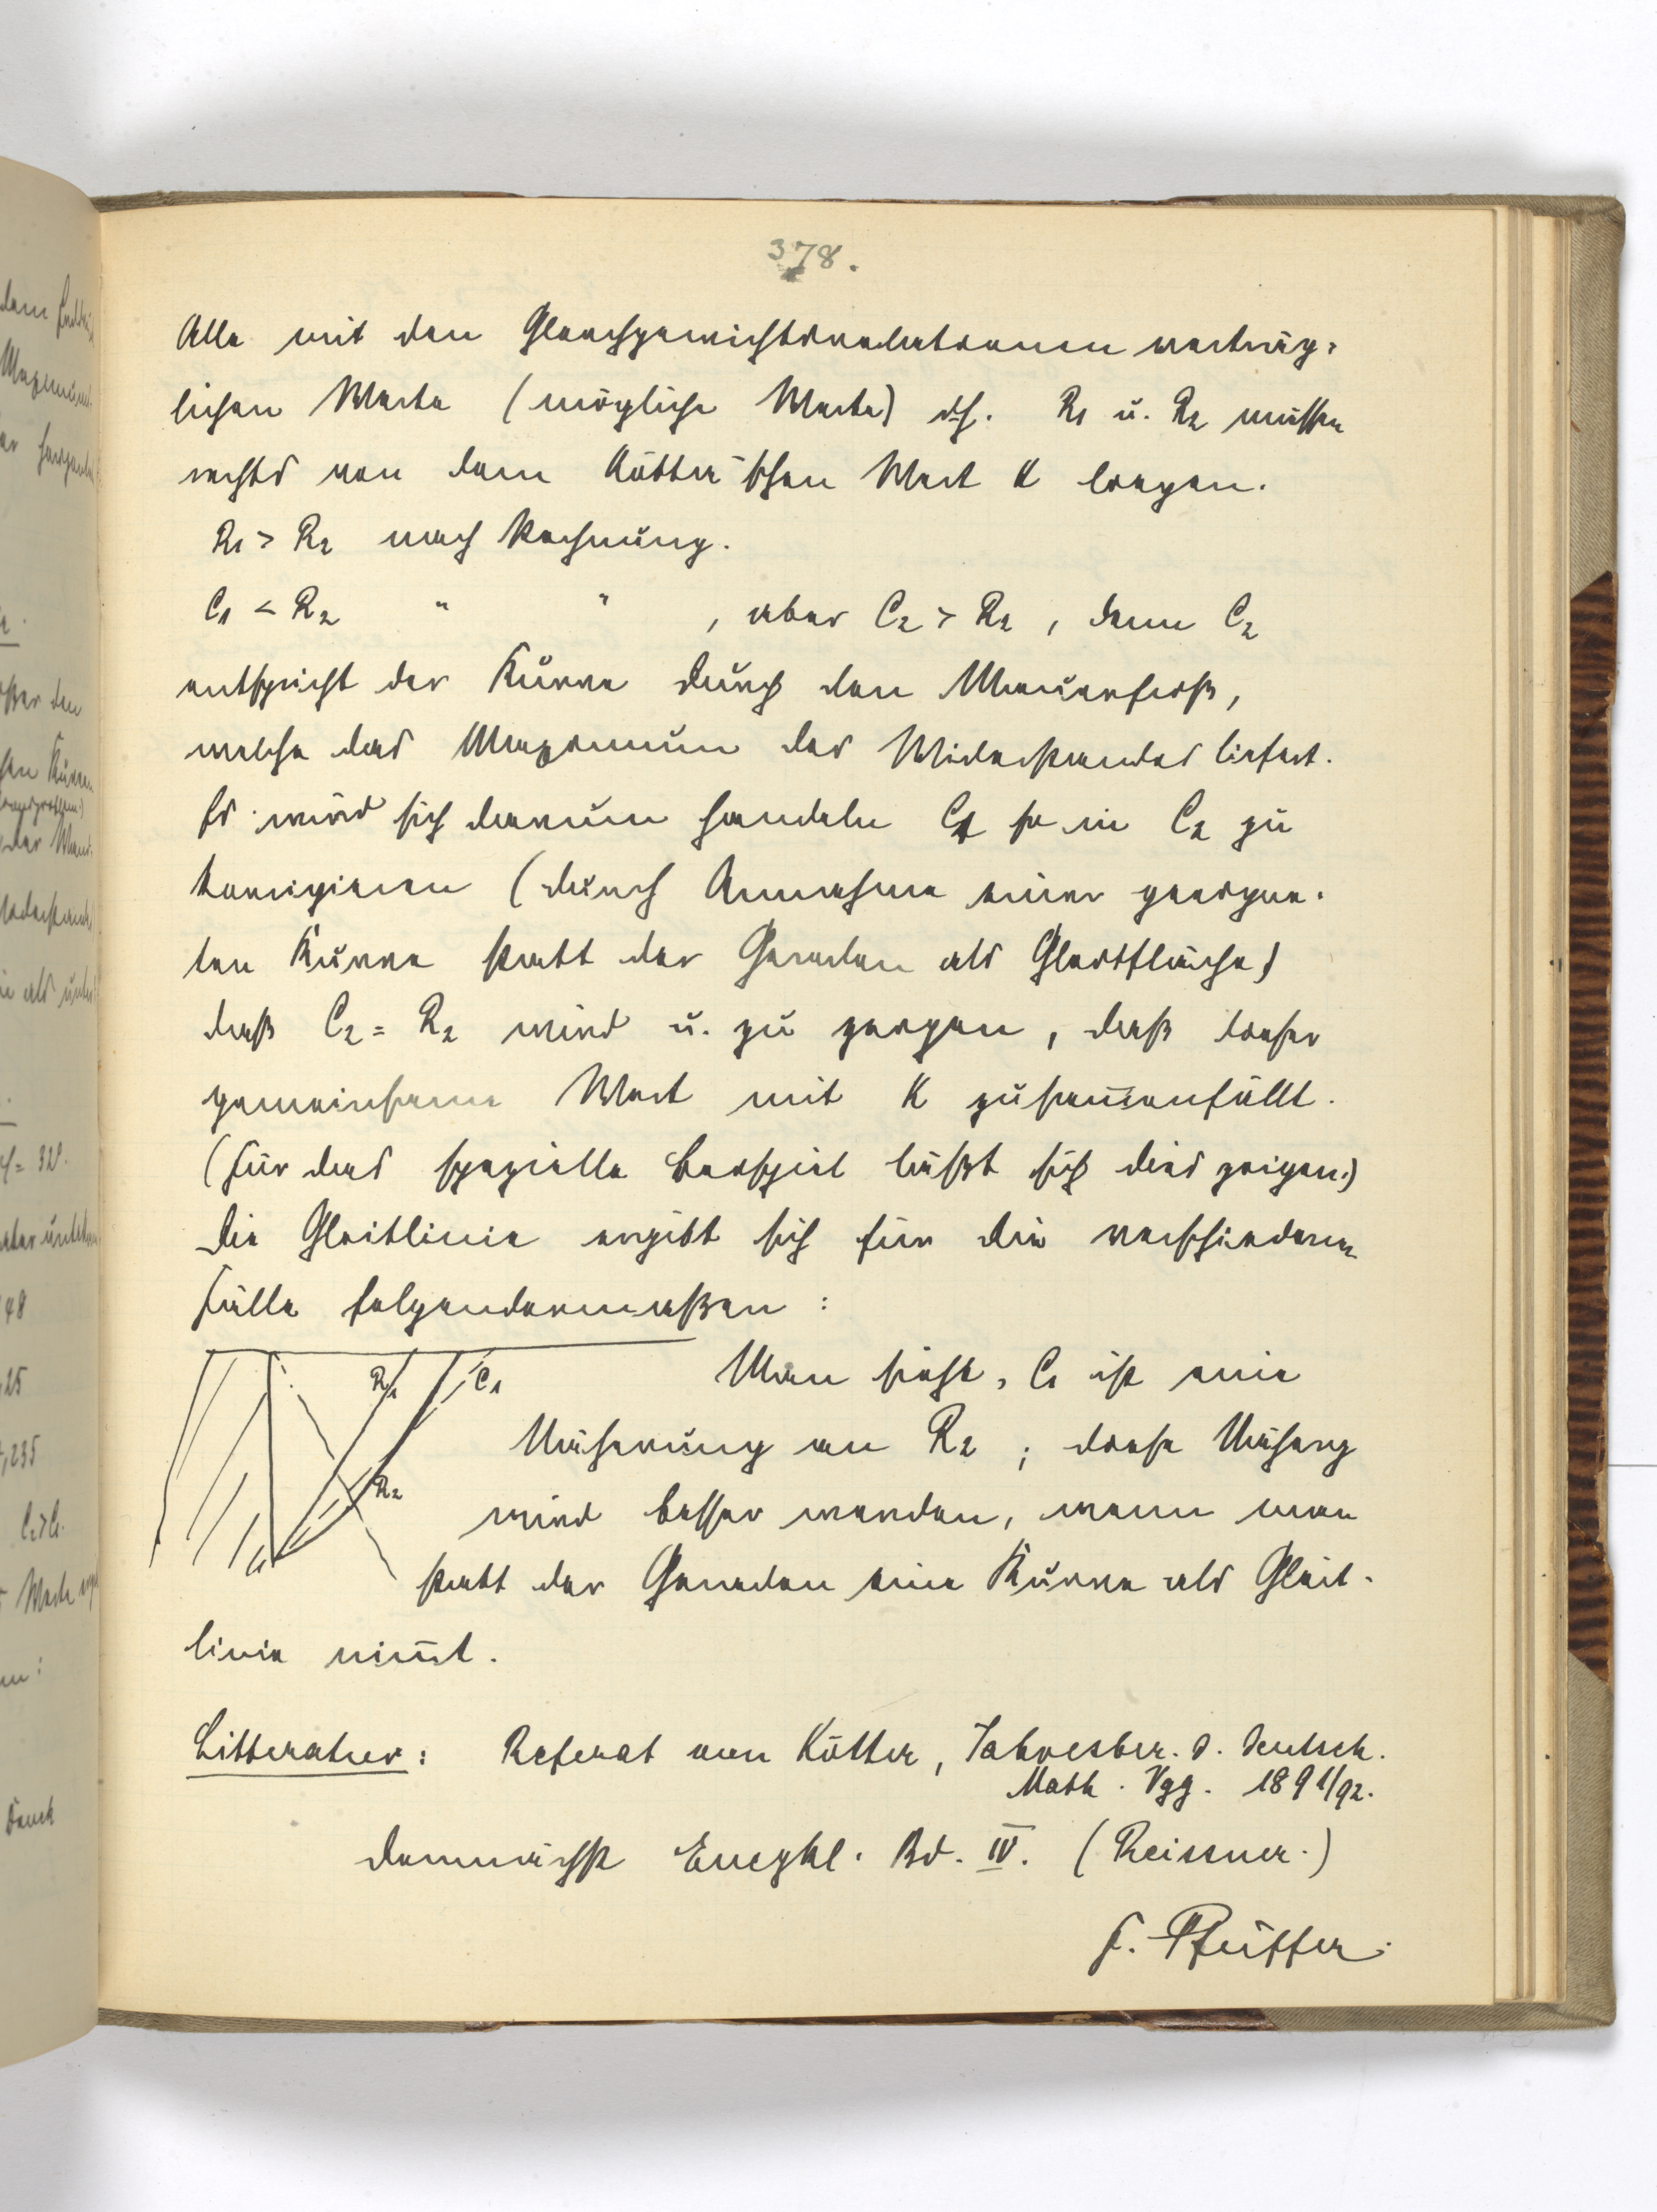 378.
Alle mit den Gleichgewichtsrelationen verträg-
lichen Werte (mögliche Werte) d.h. R1 u. R2 müssen
rechts von dem Kötter'schen Wert K liegen.
R1 > R2 nach Rechnung.
C1 < R2 " " , aber C2 > R2 , denn C2
entspricht der Kurve durch den Mauerfuß,
welche das Maximum des Widerstandes liefert.
Es wird sich darum handeln C1 so in C2 zu
korrigieren (durch Annahme einer geeigne-
ten Kurve statt der Geraden als Gleitfläche)
daß C2 = R2 wird u. zu zeigen, daß dieser
gemeinsame Wert mit K zusam̅enfällt.
(Für das spezielle Beispiel läßt sich dies zeigen.)
Die Gleitlinie ergibt sich für die verschiedenen
Fälle folgendermaßen :
R1 C1
Man sieht, C1 ist eine
Näherung an R2 ; diese Näherg
R2
wird besser werden, wenn man
statt der Geraden eine Kurve als Gleit-
linie nim̅t.
Litteratur : Referat von Kötter, Jahresber. d. deutsch.
Math. Vgg. 1891/92.
demnächst Encykl. Bd. IV. (Reissner.)
F. Pfeiffer.